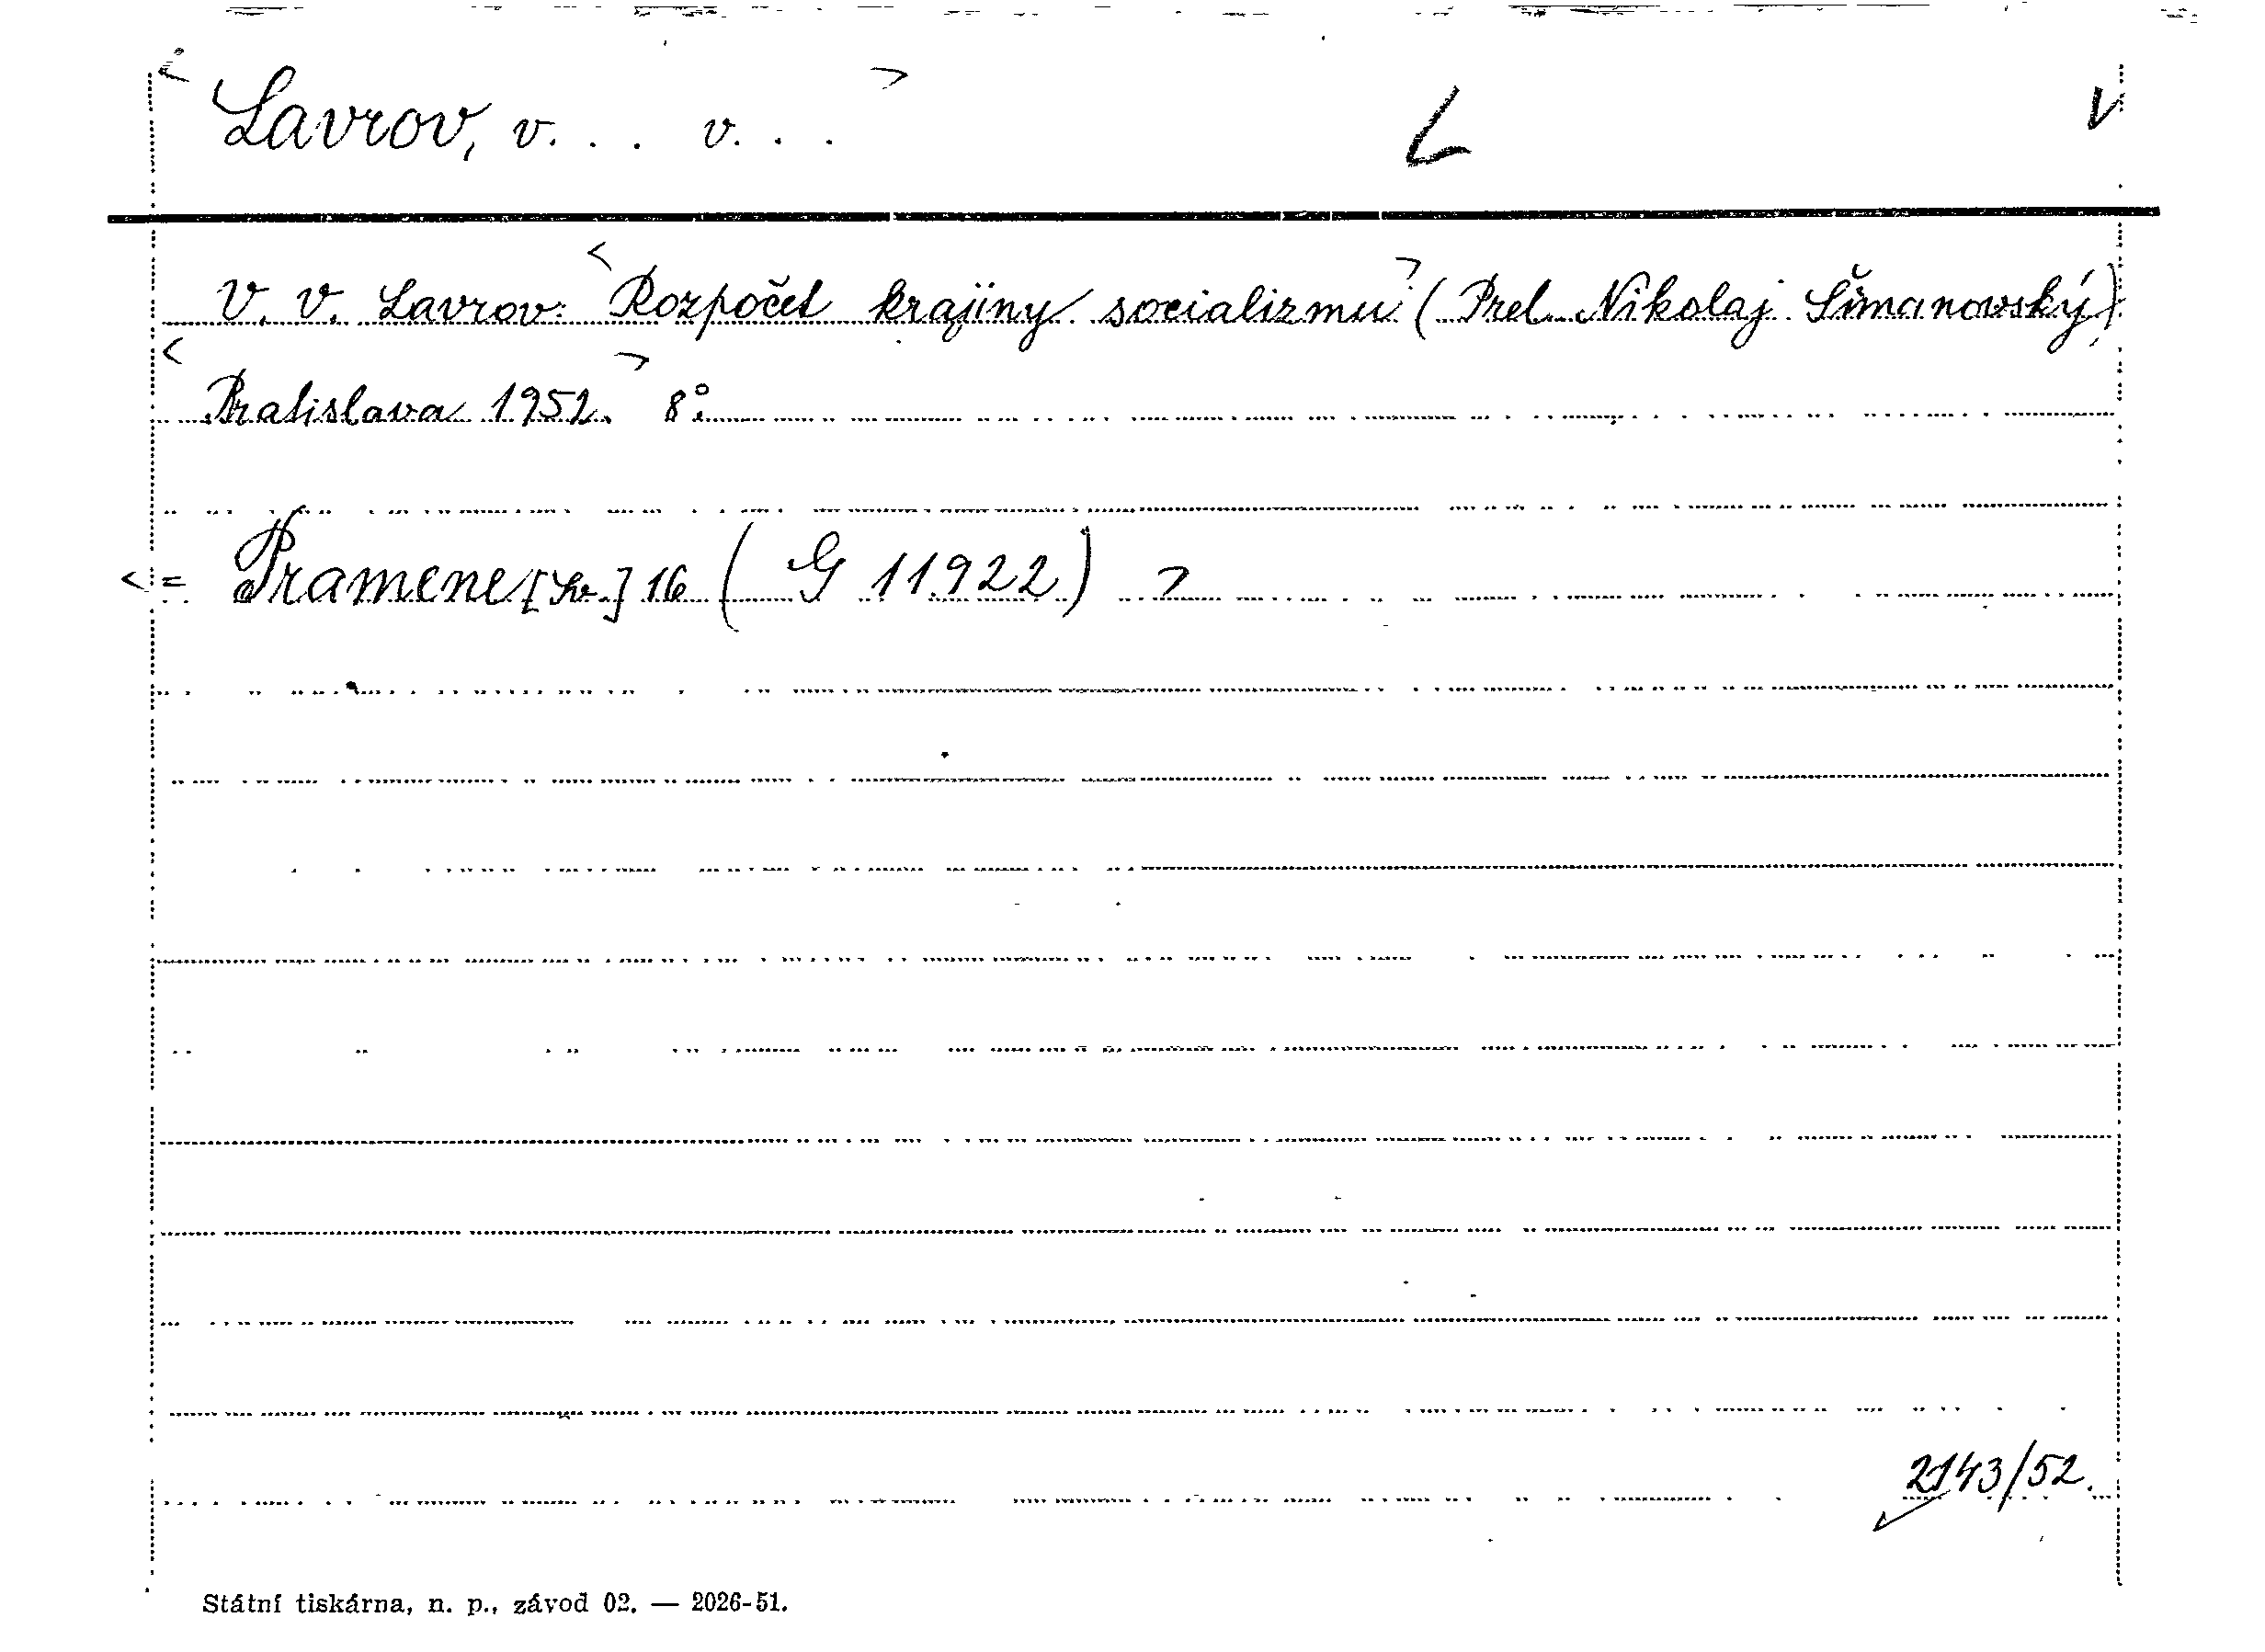 < Lavrov, v... v... > L V
V. V. Lavrov: <Rozpočet krajiny socializmu> (Prel. Nikolaj Šimanovský)
<Bratislava 1952.> 8°.
<= Pramene [Sv.] 16 ( G 11922) >
2143/52.
Státní tiskárna, n. p., závod 02. — 2026-51.